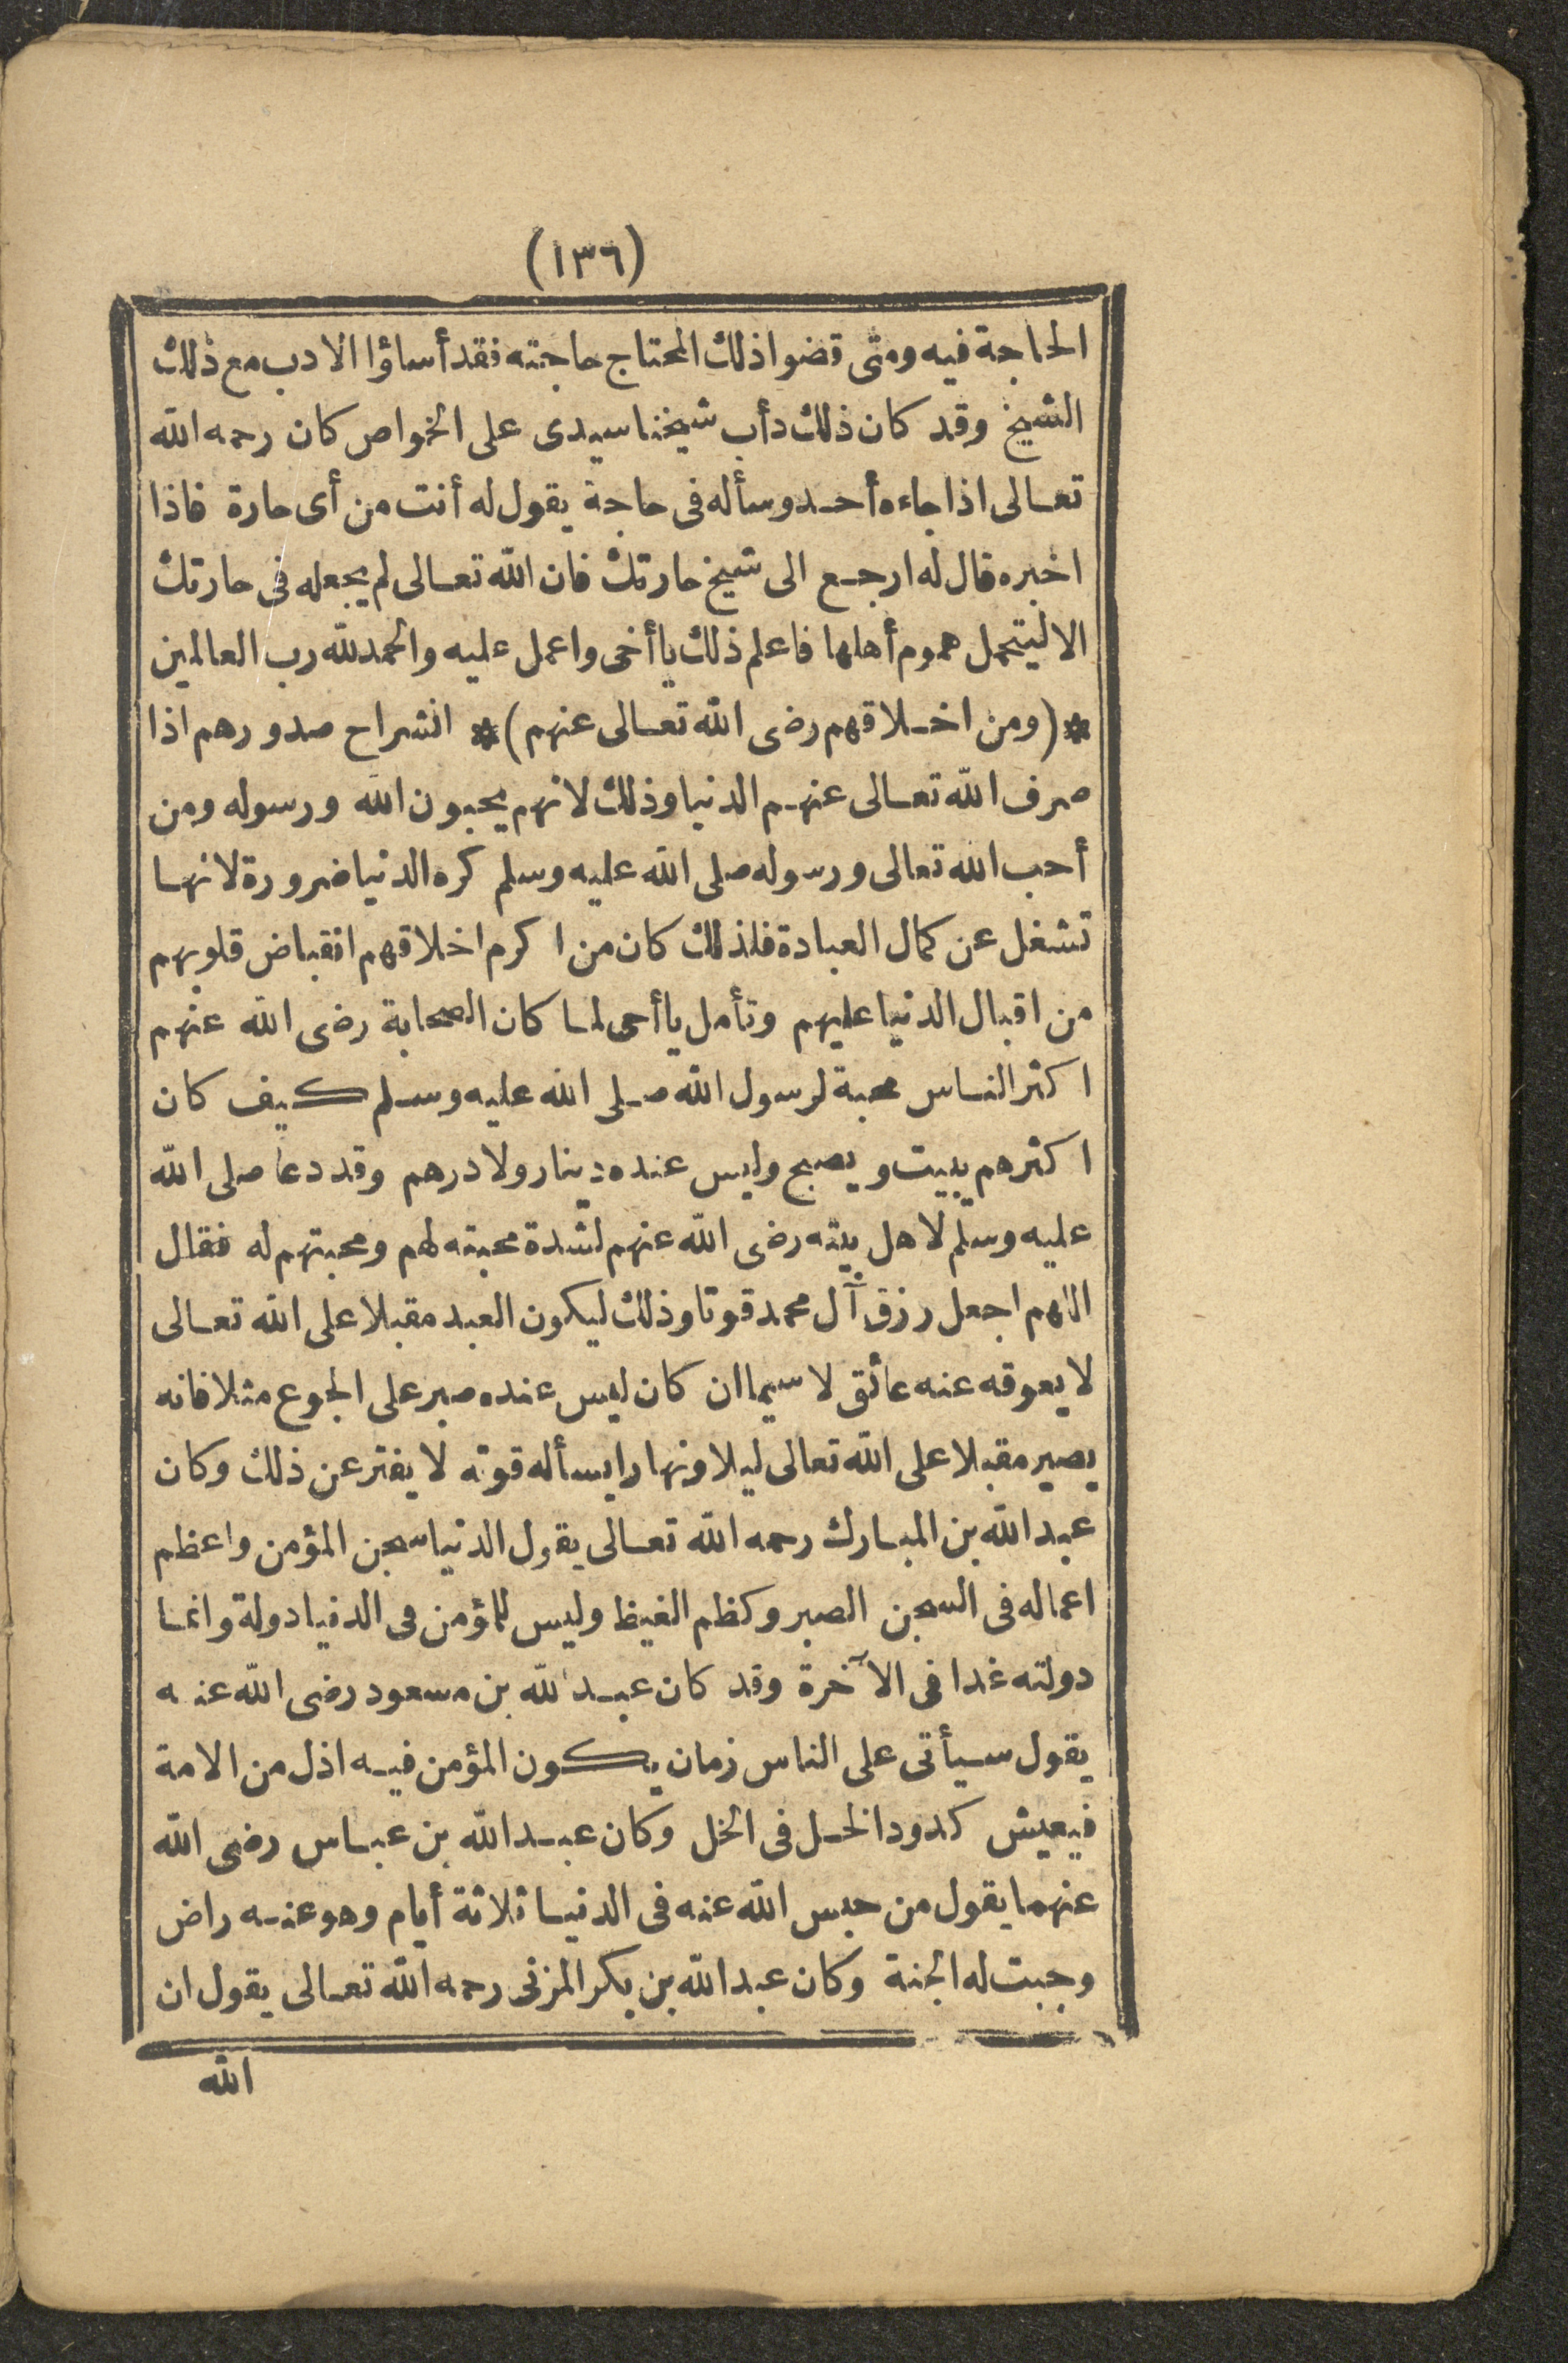 (١٣٦)
الحاجة فيه ومتى قضوا ذلك المحتاج حاجته فقد أساؤا الادب مع ذلك
الشيخ وقد كان ذلك دأب شيخنا سيدى على الخواص كان رحمه الله
تعالى اذا جاءه أحد وسأله فى حاجة يقول له أنت من أى حارة فاذا
اخبره قال له ارجع الى شيخ حارتك فان الله تعالى لم يجعله فى حارتك
الا ليتحمل هموم أهلها فاعلم ذلك يا أخى واعمل عليه والحمد لله رب العالمين
* (ومن اخلاقهم رضى الله تعالى عنهم) * انشراح صدورهم اذا
صرف الله تعالى عنهم الدنيا وذلك لانهم يحبون الله ورسوله ومن
أحب الله تعالى ورسوله صلى الله عليه وسلم كره الدنيا ضرورة لانها
تشغل عن كمال العبادة فلذلك كان من اكرم اخلاقهم انقباض قلوبهم
من اقبال الدنيا عليهم وتأمل يا أخى لما كان الصحابة رضى الله عنهم
اكثر الناس محبة لرسول الله صلى الله عليه وسلم كيف كان
اكثرهم يبيت ويصبح وليس عنده دينار ولا درهم وقد دعا صلى الله
عليه وسلم لاهل بيته رضى الله عنهم لشدة محبته لهم ومحبتهم له فقال
اللهم اجعل رزق آل محمد قوتا وذلك ليكون العبد مقبلا على الله تعالى
لا يعوقه عنه عائق لا سيما ان كان ليس عنده صبر على الجوع مثلا فانه
يصير مقبلا على الله تعالى ليلا ونهارا يسأله قوته لا يفتر عن ذلك وكان
عبد الله بن المبارك رحمه الله تعالى يقول الدنيا سجن المؤمن واعظم
اعماله فى السجن الصبر وكظم الغيظ وليس للمؤمن فى الدنيا دولة وانما
دولته غدا فى الآخرة وقد كان عبد الله بن مسعود رضى الله عنه
يقول سيأتى على الناس زمان يكون المؤمن فيه اذل من الامة
فيعيش كدود الخل فى الخل وكان عبد الله بن عباس رضى الله
عنهما يقول من حبس الله عنه فى الدنيا ثلاثة أيام وهو عنه راض
وجبت له الجنة وكان عبد الله بن بكر المزنى رحمه الله تعالى يقول ان
الله